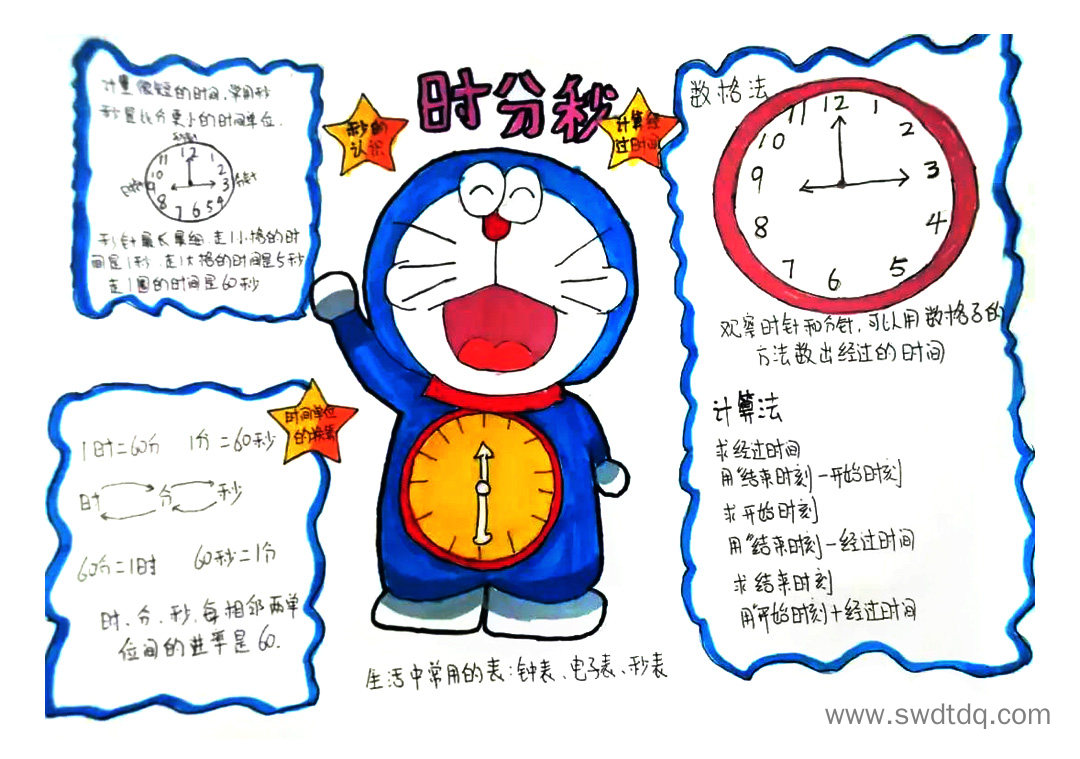 时分秒
秒的
认识
计量很短的时间,常用秒
秒是比分更小的时间单位.
秒针
12
1
2
3
4
5
6
7
8
9
10
11
时针
分针
秒针最长最细.走1小格的时
间是1秒.走1大格的时间是5秒
走1圈的时间是60秒
时间单位
的换算
1时=60分 1分=60秒
时 分 秒
60分=1时 60秒=1分
时、分、秒,每相邻两单
位间的进率是60.
计算经
过时间
数格法
12
1
2
3
4
5
6
7
8
9
10
11
观察时针和分针,可以用数格子的
方法数出经过的时间
计算法
求经过时间
用"结束时刻-开始时刻
求开始时刻
用"结束时刻-经过时间
求结束时刻
用"开始时刻+经过时间
生活中常用的表:钟表、电子表、秒表
www.swdtdq.com